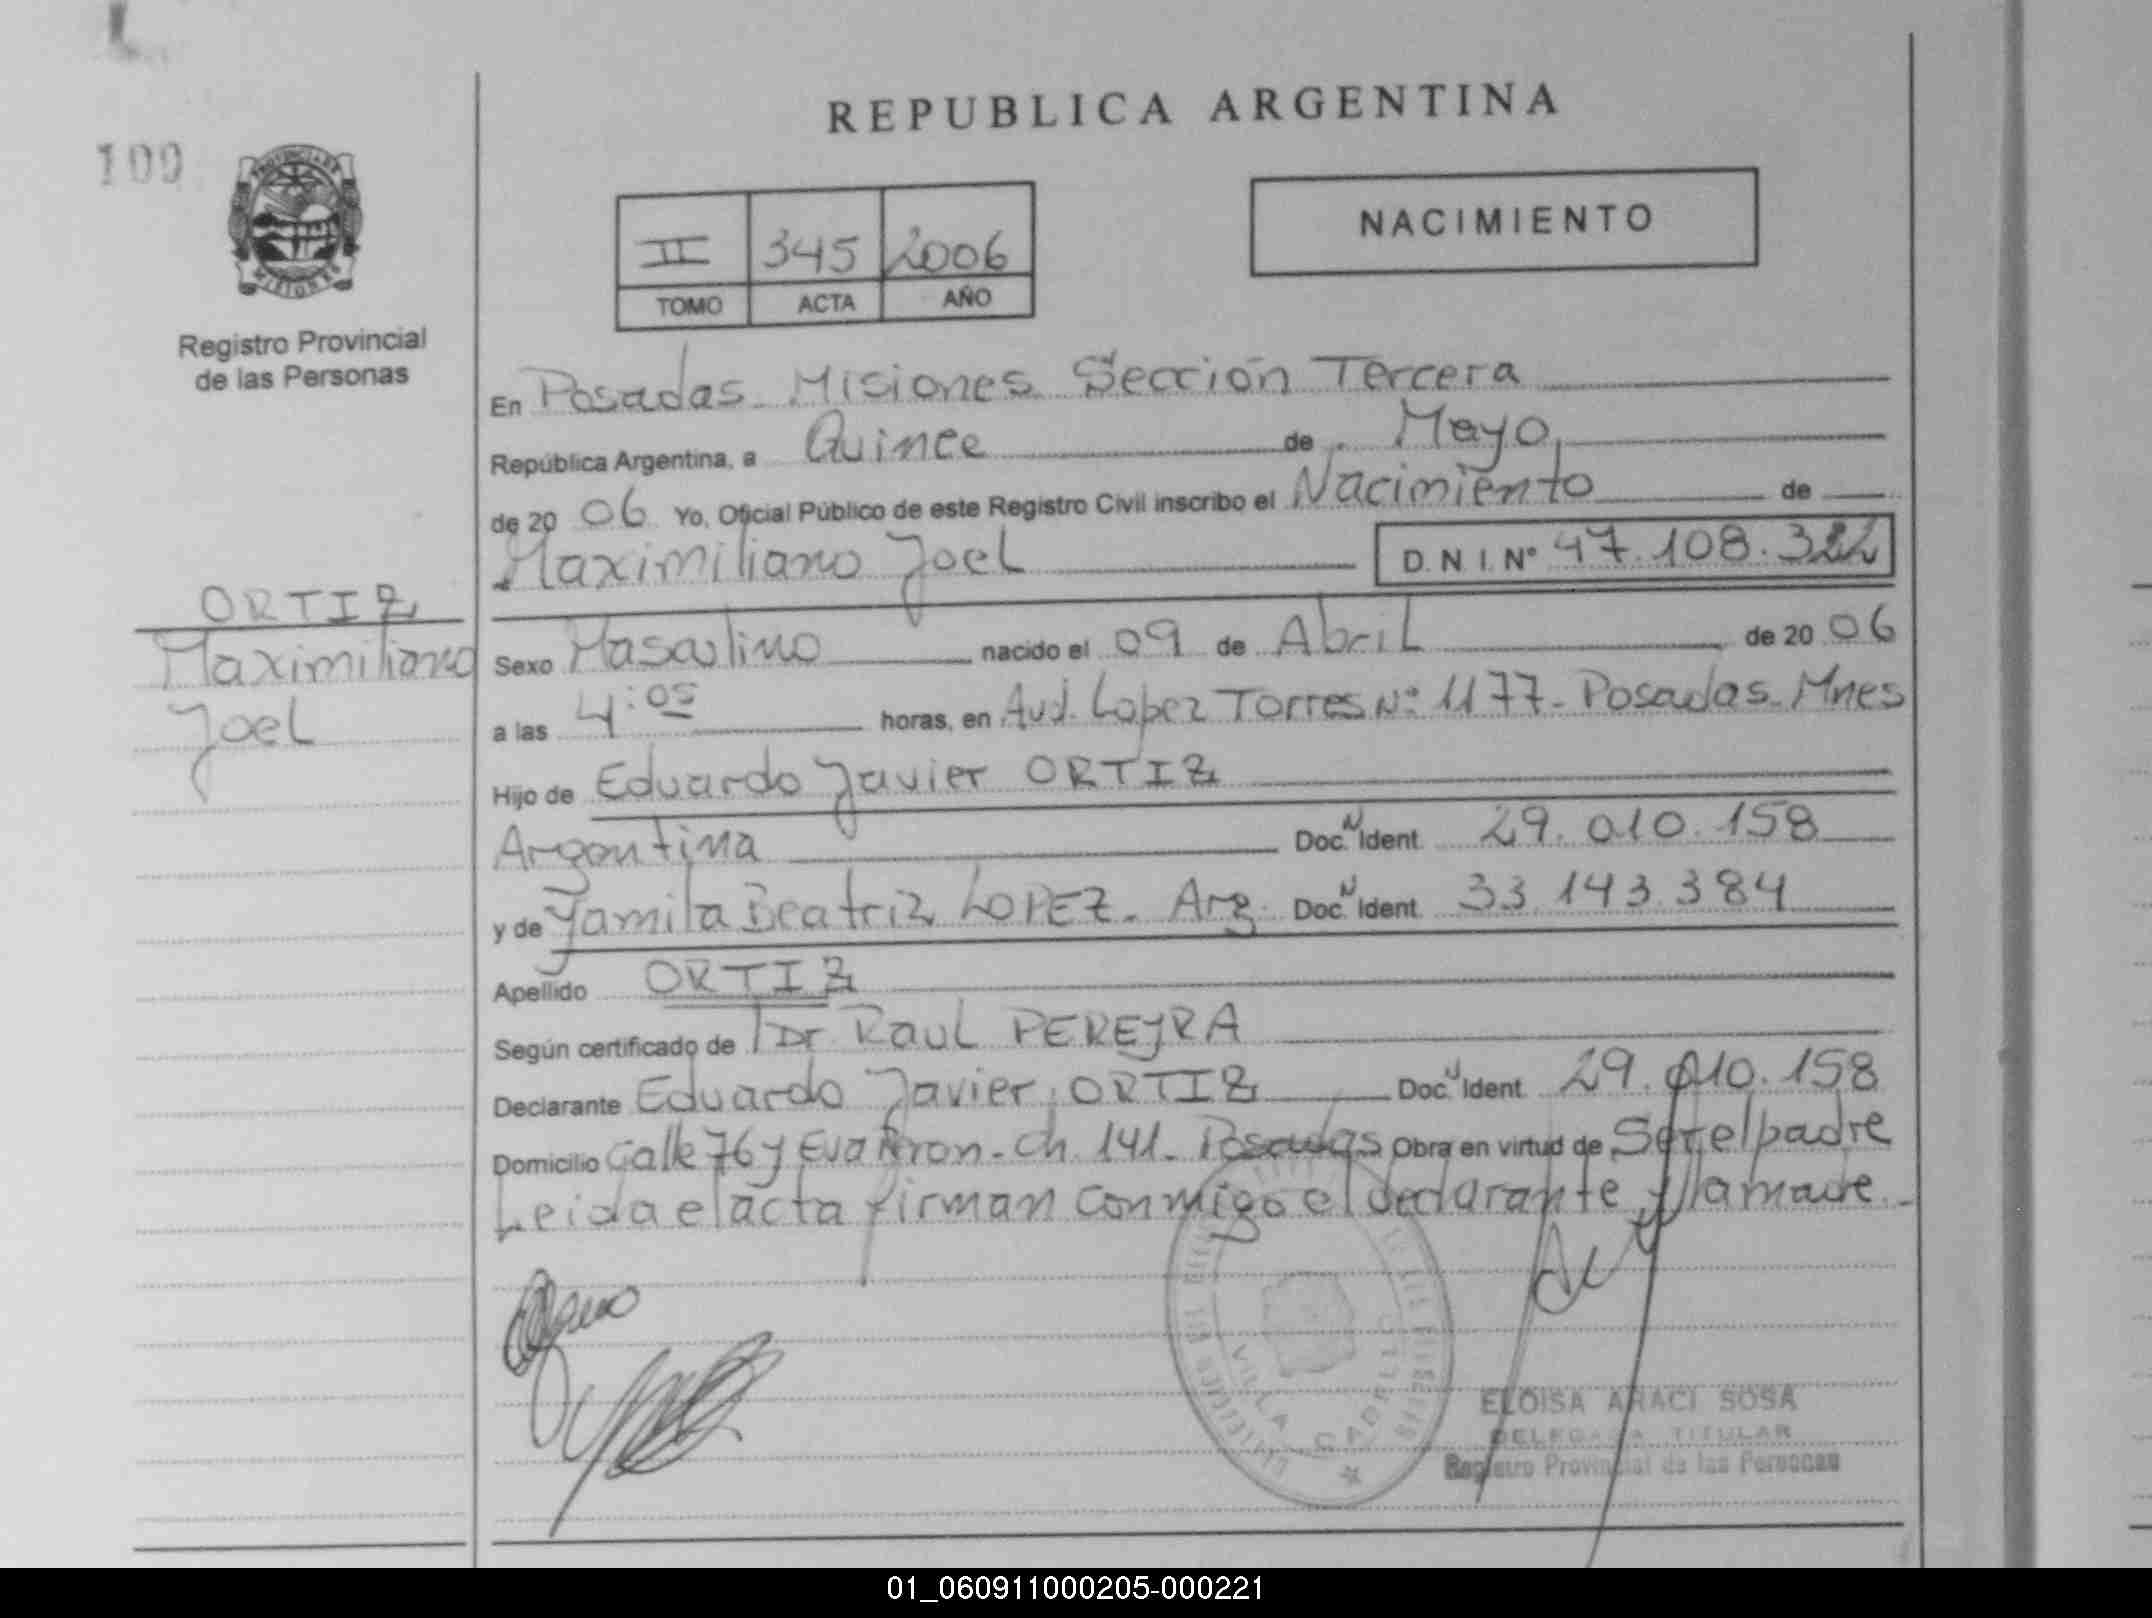 REPUBLICA ARGENTINA
100
PROVINCIA DE
MISIONES
Registro Provincial
de las Personas
II 345 2006
TOMO ACTA AÑO
NACIMIENTO
En Posadas Misiones Sección Tercera
República Argentina, a Quince de Mayo
de 20 06 Yo, Oficial Público de este Registro Civil inscribo el Nacimiento de
Maximiliano Joel D.N.I.Nº 47.108.322
ORTIZ
Maximiliano
Joel
Sexo Masculino nacido el 09 de Abril de 20 06
a las 4:05 horas, en Avd. Lopez Torres Nº 1177- Posadas- Mnes
Hijo de Eduardo Javier ORTIZ
Argentina Doc. N Ident 29.010.158
y de Yamila Beatriz LOPEZ- Arg. Doc. N Ident 33.143.384
Apellido ORTIZ
Según certificado de Dr Raul PEREYRA
Declarante Eduardo Javier ORTIZ Doc. N Ident 29.010.158
Domicilio Calle 76 y Eva Peron- Ch. 141- Posadas Obra en virtud de Ser el padre
Leida el acta firman conmigo el declarante y la madre.-
VILLA CABELLO
ELOISA ARACI SOSA
DELEGADA TITULAR
Registro Provincial de las Personas
01_060911000205-000221